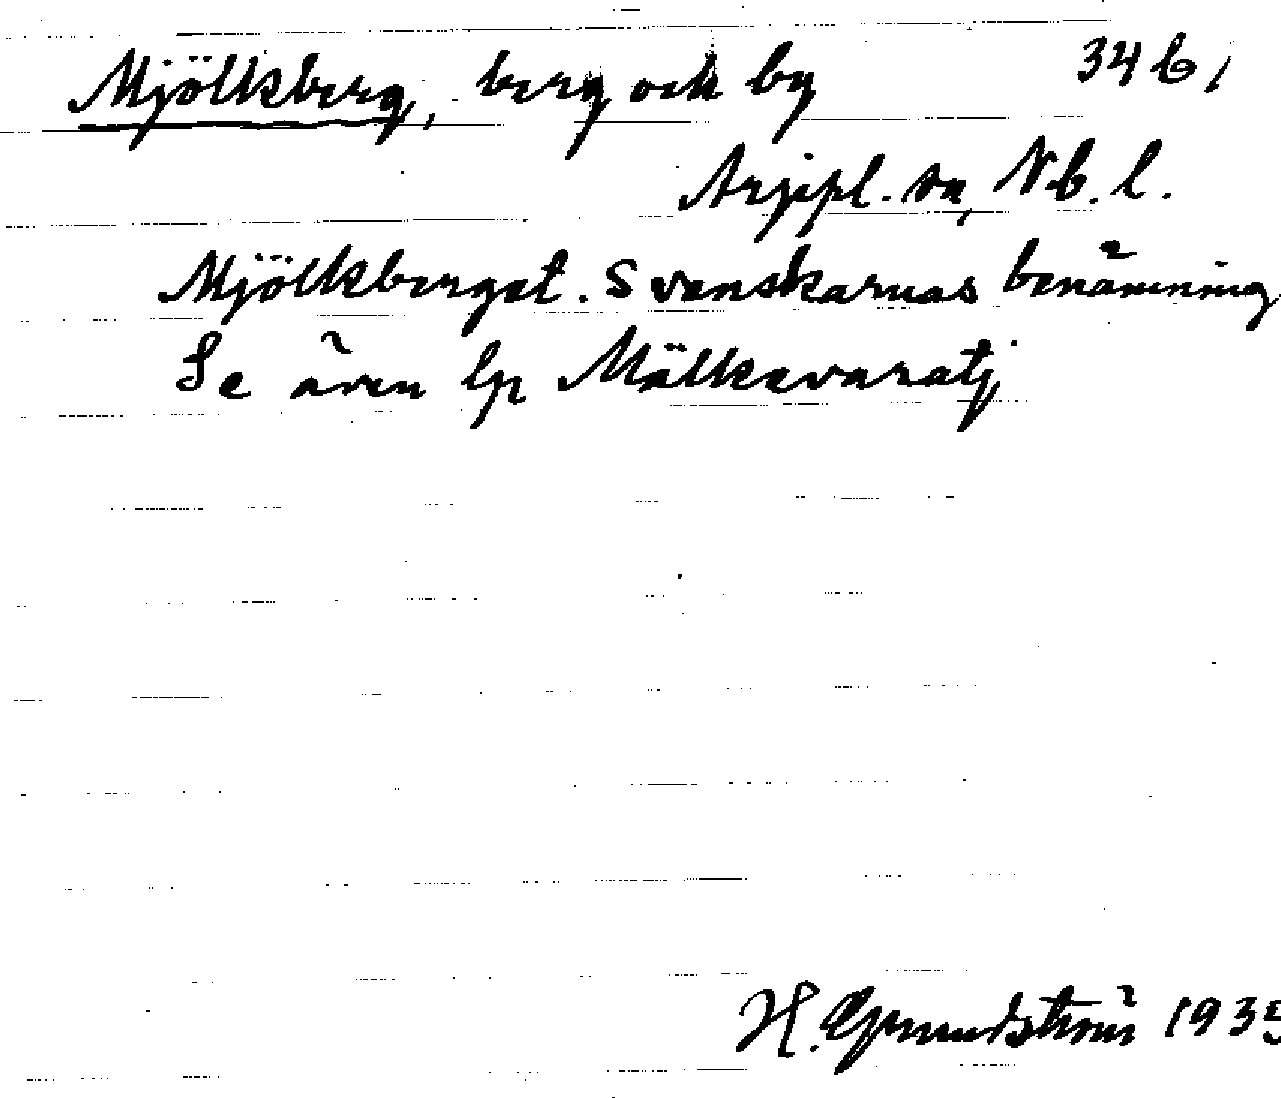 Mjölkberg, berg och by 346,
Arjepl. sn, Nb. l.
Mjölkberget. Svenskarnas benämning
Se även lp Mälkevaratj
H. Grundström 1935